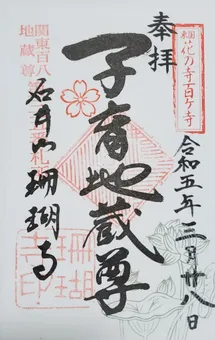 奉拝
東国花の寺百ヶ寺
令和五年二月廿八日
子育地蔵尊
関東百八
地蔵尊
石井山珊瑚寺
珊瑚
寺印